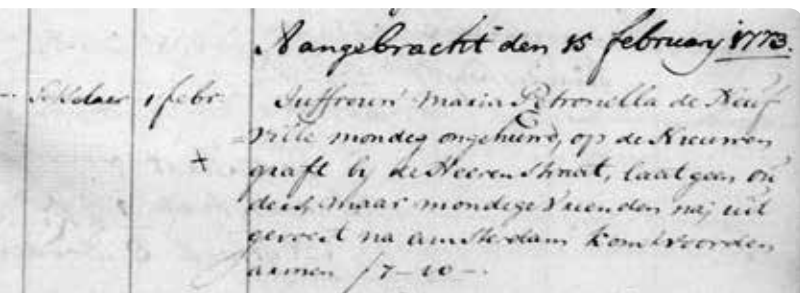 Aangebracht den 15 february 1773.
1 febr. Juffrouw Maria Petronella de Neuf
= ville mondig ongehuwd, op de Nieuwen
+ graft bij de Heerenstraat, laat geen ou
ders, maar mondige Vrienden na, uit
gevoert na amsterdam komt voor den
armen f 7-10-.